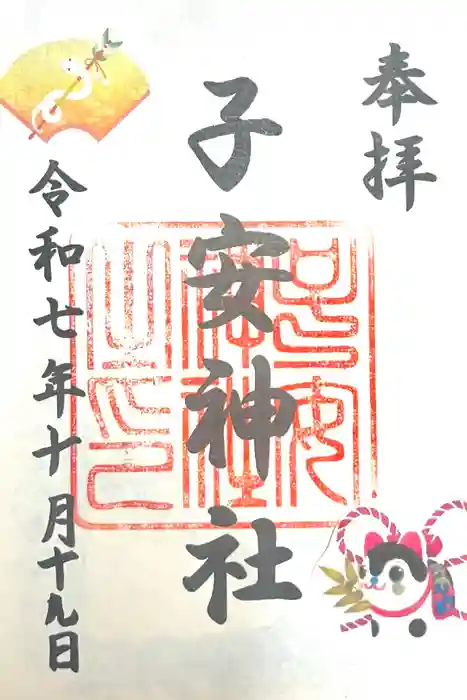 奉拝
子安神社
令和七年十月十九日